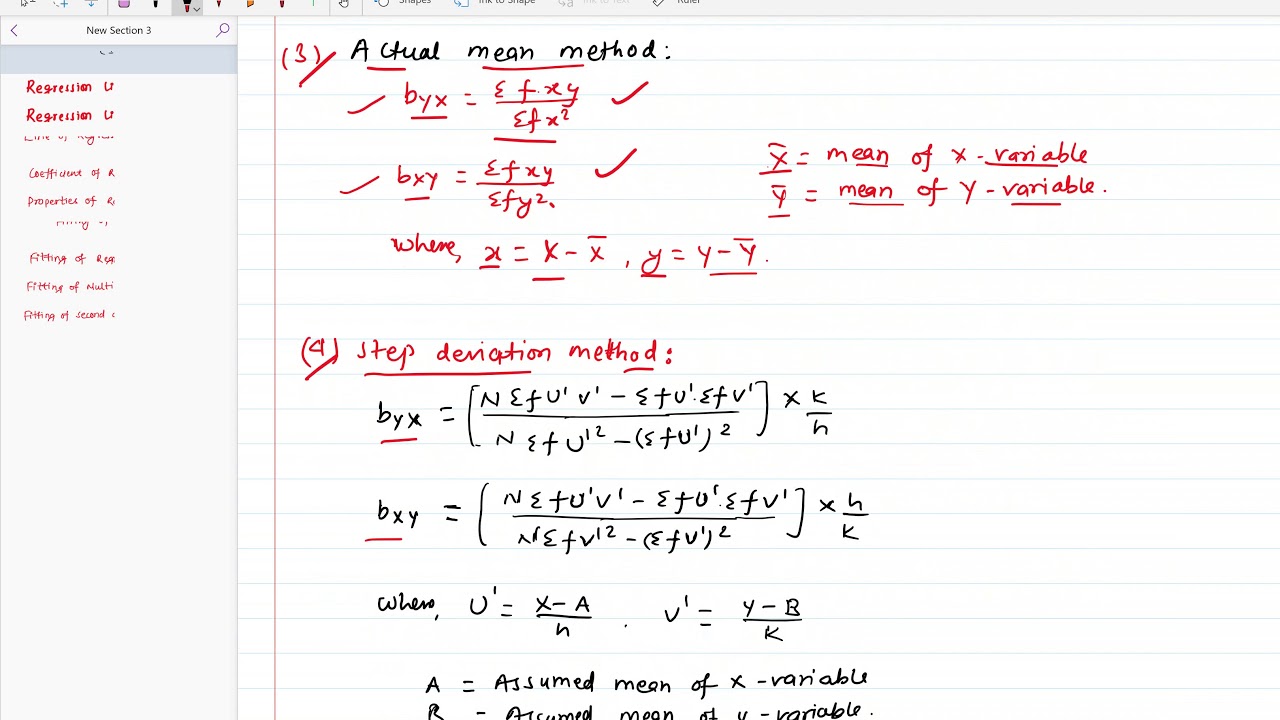 Shapes
Ink to Shape
Ink to Text
Ruler
New Section 3
Regression Li
Regression Li
Line of Regre
Coefficient of R
Properties of Re
Fitting of
Fitting of Reg
Fitting of Multi
Fitting of second
(3) Actual mean method:
byx = Σf.xy / Σfx²
bxy = Σfxy / Σfy².
X̄ = mean of X-variable
Ȳ = mean of Y-variable.
where, x = X - X̄, y = Y - Ȳ.
(4) Step deviation method:
byx = [NΣfU'V' - ΣfU'.ΣfV' / NΣfU'² - (ΣfU')²] × k/h
bxy = [NΣfU'V' - ΣfU'.ΣfV' / NΣfV'² - (ΣfV')²] × h/k
where, U' = X-A / h . V' = Y-B / k
A = Assumed mean of X-variable
B = Assumed mean of Y-variable.